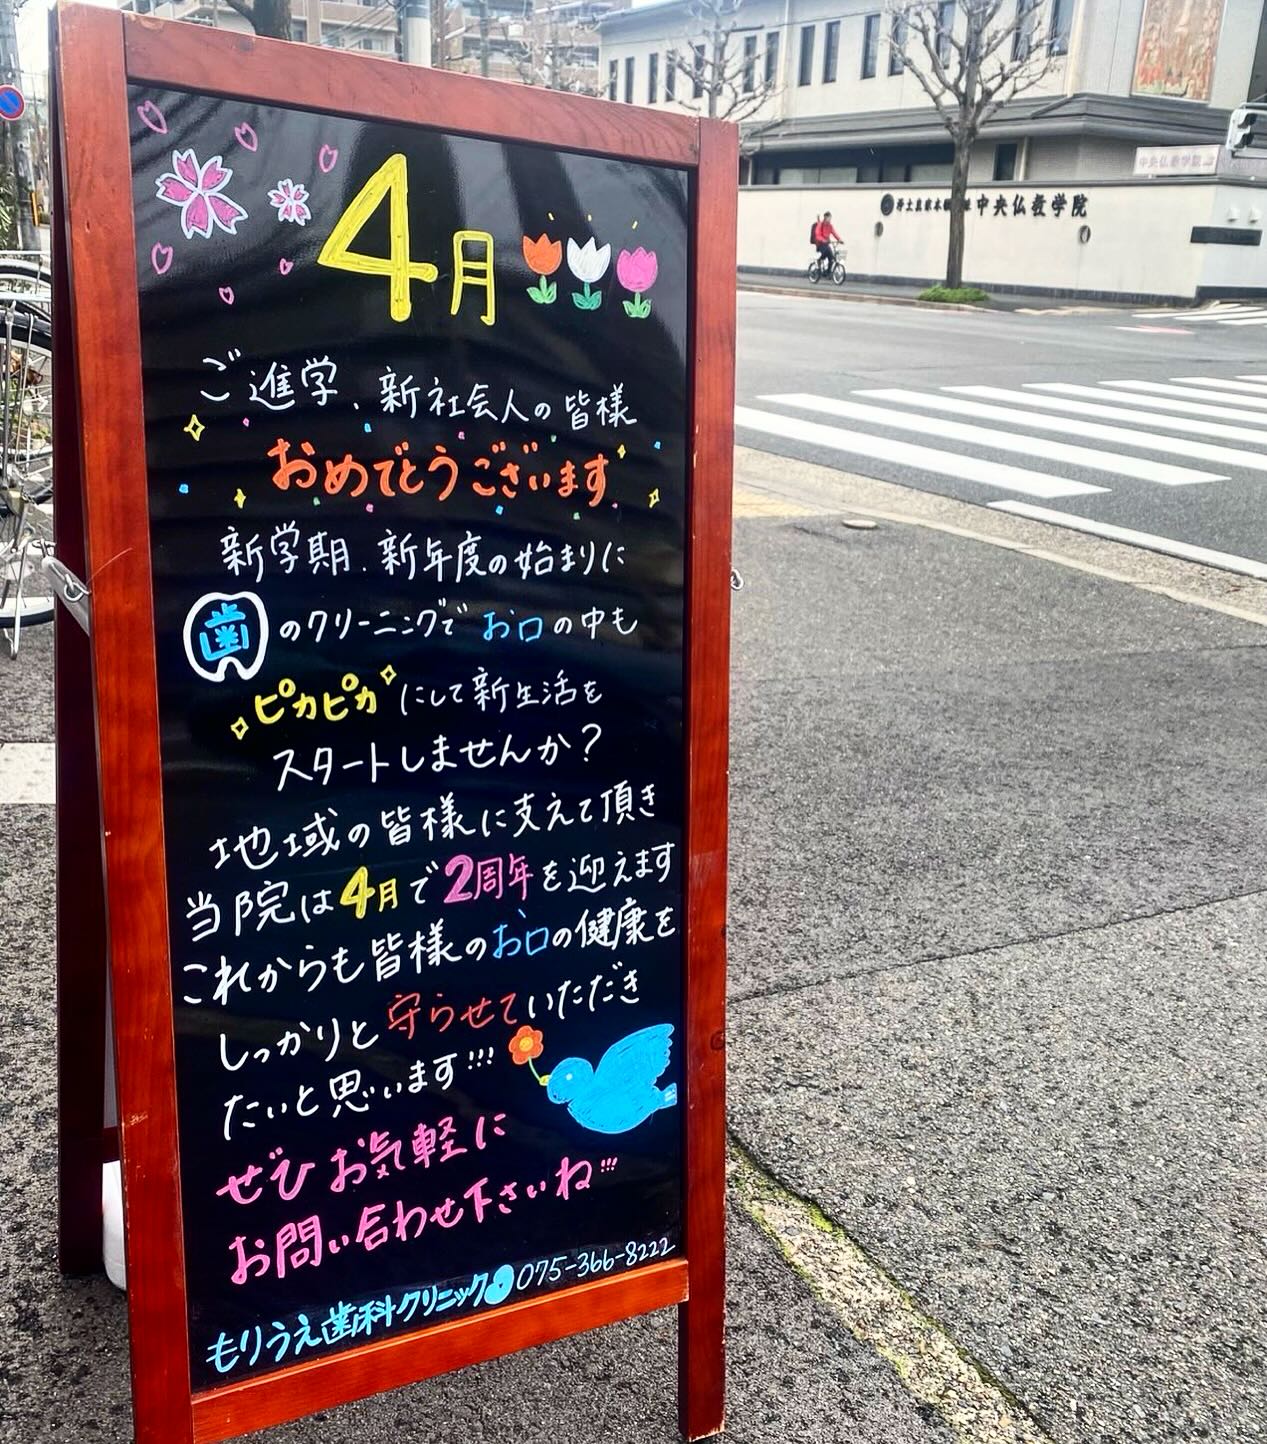 4月
ご進学、新社会人の皆様
おめでとうございます
新学期、新年度の始まりに
歯のクリーニングでお口の中も
ピカピカにして新生活を
スタートしませんか?
地域の皆様に支えて頂き
当院は4月で2周年を迎えます
これからも皆様のお口の健康を
しっかりと守らせていただき
たいと思います!!!
ぜひお気軽に
お問い合わせ下さいね!!!
もりうえ歯科クリニック 075-366-8222
中央仏教学院
中央仏教学院